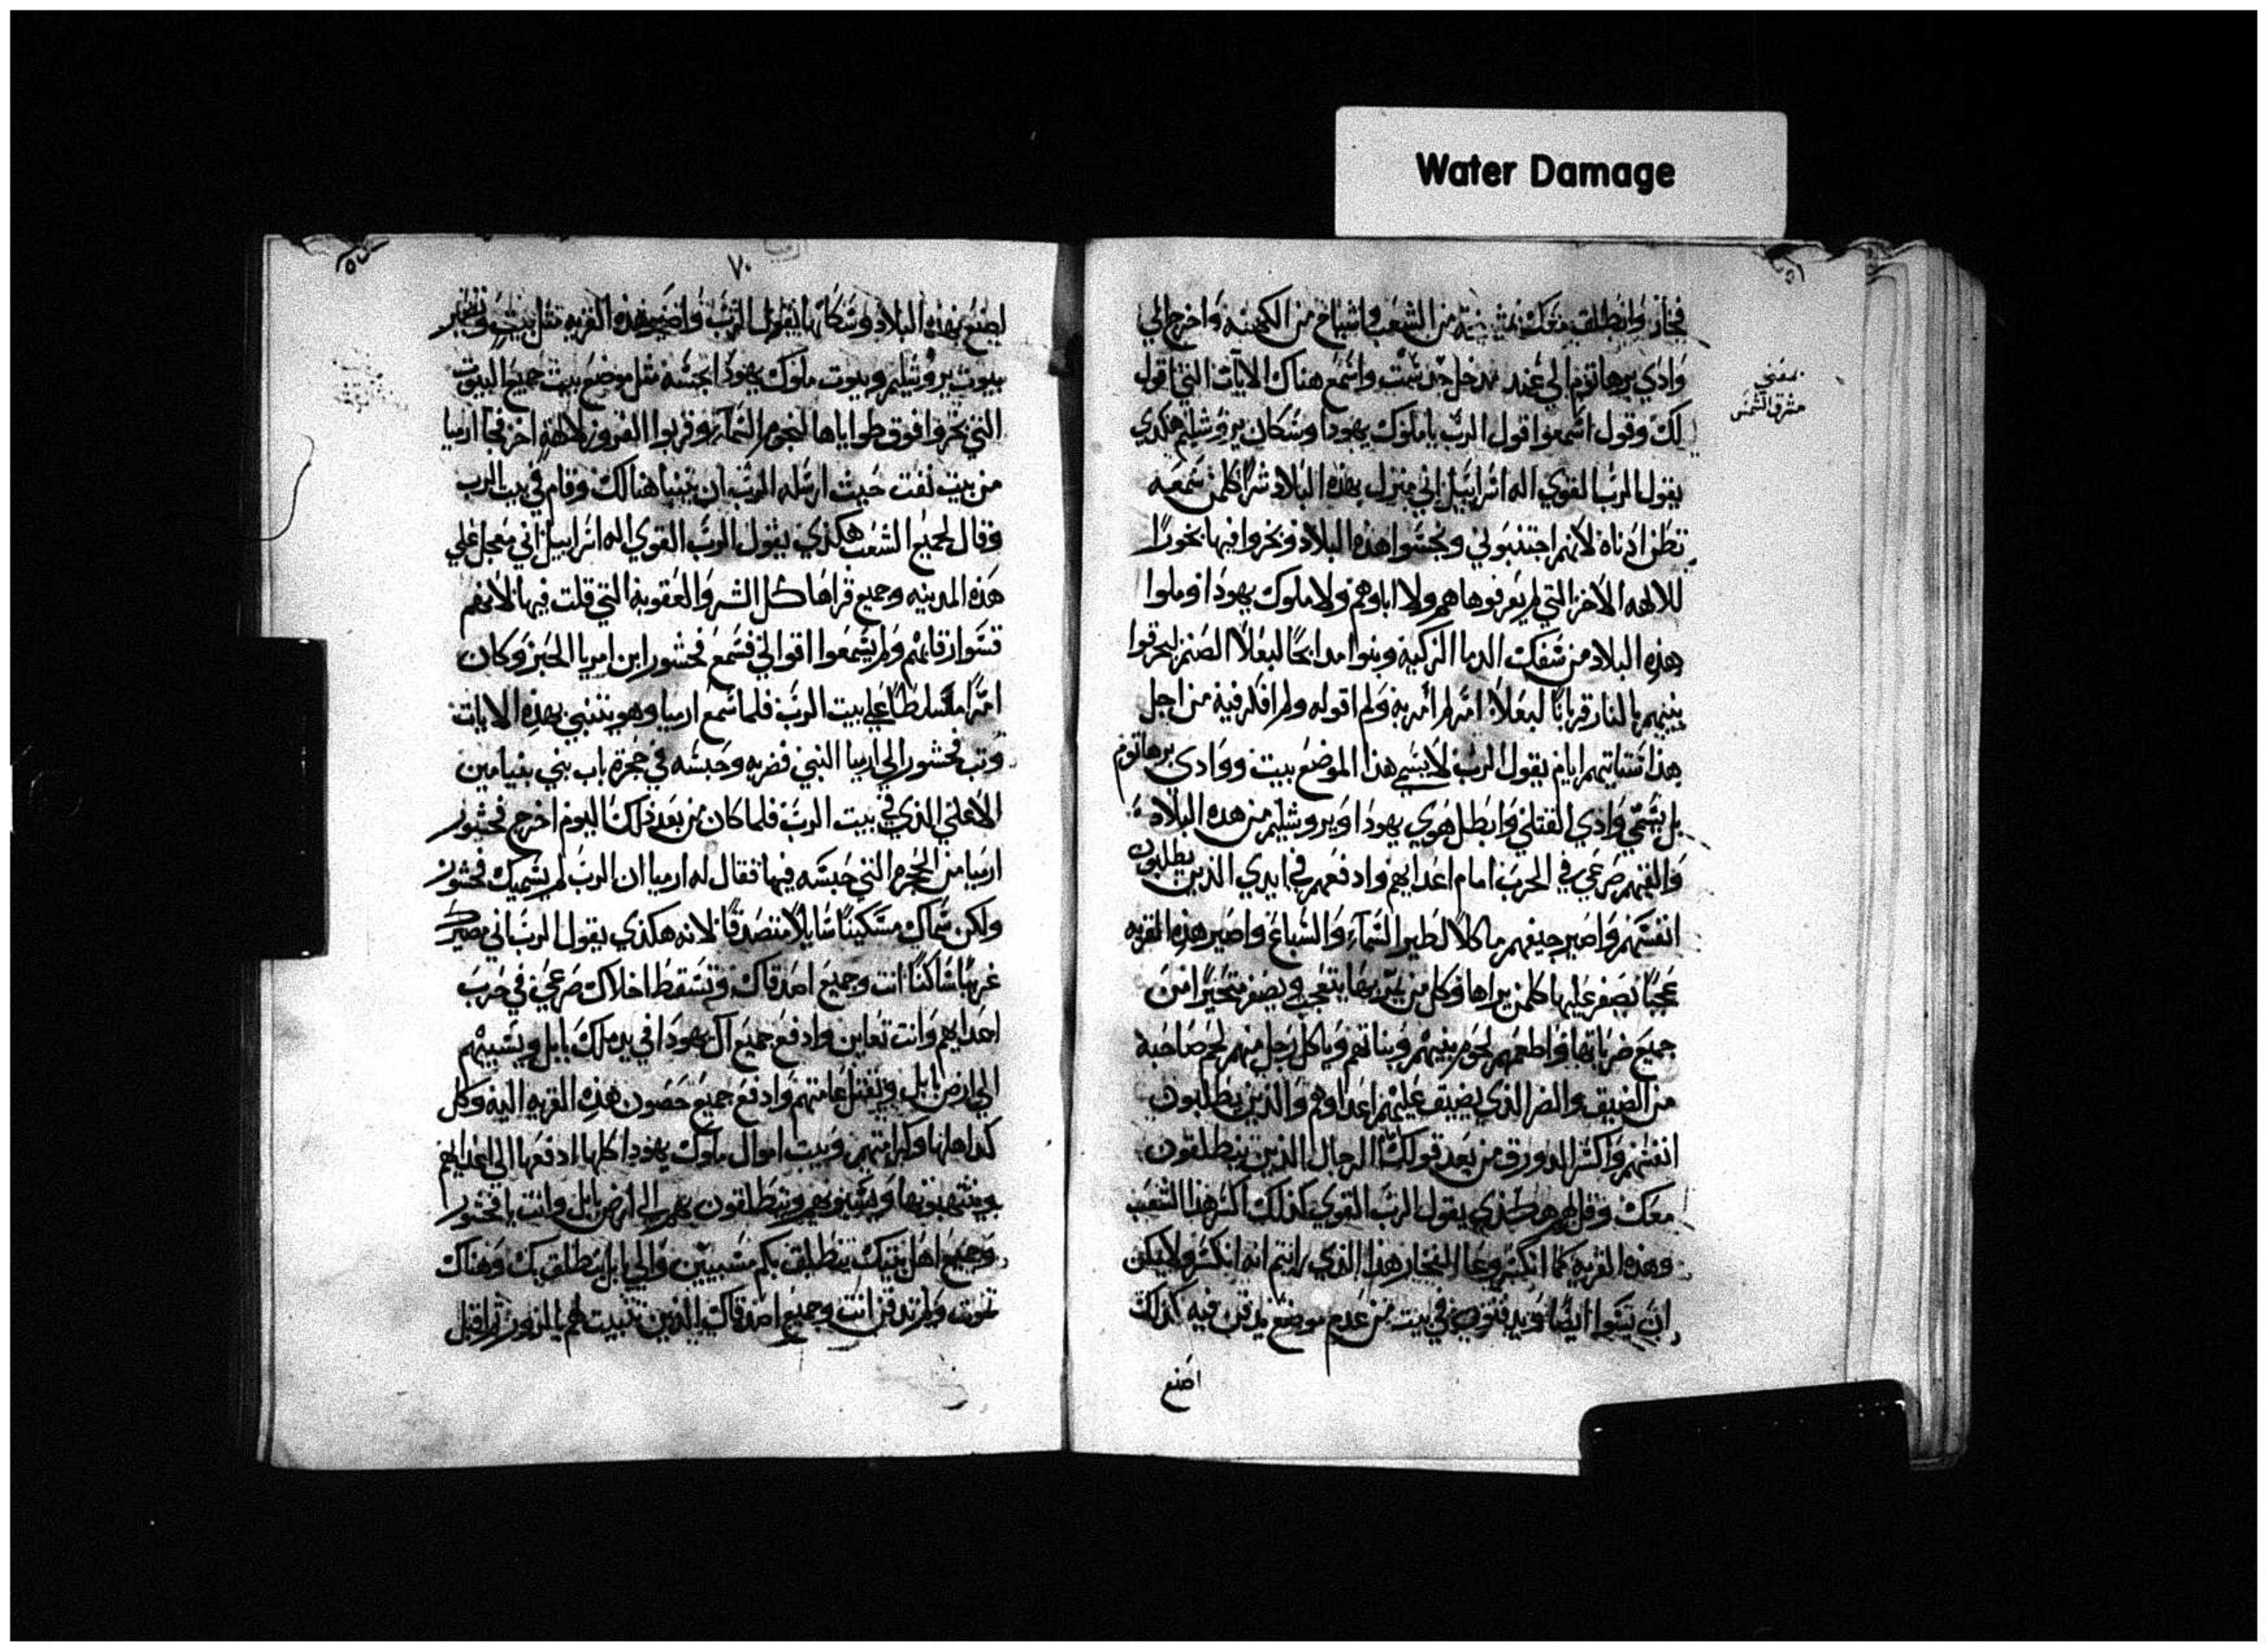 Water Damage
فخار وانطلق معك بمشيخة من الشعب واشياخ من الكهنه واخرج الي
وادي برهانوم الي عند مدخل حد شمت واسمع هناك الايات التي اقول
لك وقول اسمعوا قول الرب يا ملوك يهودا وسكان يروشليم هكذي
يقول الرب القوي اله اسراييل اني منزل بهذه البلاد شرا كلمن سمعه
تطن اذناه لانهم اجتنبوني ونجسوا هذه البلاد وبخروا فيها بخورا
للالهه الاخر التي لم يعرفوها هم ولا اباوهم ولا ملوك يهودا وملوا
هذه البلاد من سفك الدما الزكيه وبنوا مدابحا لبعلا الصنم ليحرقوا
بنيهم بالنار قربانا لبعلا امر لم امر به ولم اقوله ولم افكر فيه من اجل
هذا ستاتيهم ايام يقول الرب لا يسمي هذا الموضع بيت ووادي برهانوم
بل يسمي وادي القتلي وابطل هوي يهودا ويروشليم من هذه البلاد
والقيهم صرعي في الحرب امام اعدايهم وادفعهم في ايدي الذين يطلبون
انفسهم واصير جيفهم ماكلا لطير السماء والسباع واصير هذه القريه
عجبا يصفر عليها كلمن يراها وكل من يمر بها يتعجب ويصفر متحيرا من
جميع ضرباتها واطعمهم لحوم بنيهم وبناتهم وياكل رجل منهم لحم صاحبه
من الضيق والضر الذي يضيق عليهم اعداوهم والذين يطلبون
انفسهم واكسر الدورق من بعد قولك الرجال الذين ينطلقون
معك وقل لهم هكذي يقول الرب القوي كذلك اكسر هذا الشعب
وهذه القريه كما انكسر وعا الفخار هذا الذي رايتم انه انكسر ولا يمكن
ان ايضا ويدفنون في بيت من عدم موضع يدفن فيه كذلك
اصنع
بمعني
مشرق الشمس
٧٠
اصنع بهذه البلاد وسكانها يقول الرب واصير هذه القريه مثل بيت وتصير
بيوت يروشليم وبيوت ملوك يهودا نجسه مثل موضع بيت جميع البيوت
التي بخروا فوق طواياها لنجوم السماء وقربوا القروز لالهة اخر فجا ارميا
من بيت لفت حيث ارسله الرب ان يتنبا هنالك وقام في بيت الرب
وقال لجميع الشعب هكذي يقول الرب القوي اله اسراييل اني معجل علي
هذه المدينه وجميع قراها كل الشر والعقوبه التي قلت فيها لانهم
قسوا رقابهم ولم يسمعوا اقوالي فسمع فحشور ابن امريا الحبر وكان
امرا مسلطا علي بيت الرب فلما سمع ارميا وهو يتنبي بهذه الايات
وتب فحشور الي ارميا النبي فضربه وحبسه في حجرة باب بني بنيامين
الاعلي الذي في بيت الرب فلما كان من بعد ذلك اليوم اخرج فحشور
ارميا من الحجره التي حبسه فيها فقال له ارميا ان الرب لم يسميك فحشور
ولكن سماك مسكينا سايلا متصدقا لانه هكذي يقول الرب اني مصيرك
غريبا ساكنا انت وجميع اصدقاك وتسقط اخلاك صرعي في حرب
اعدايهم وانت تعاين وادفع جميع آل يهودا في يد ملك بابل ويسبيهم
الي ارض بابل ويقتل عامتهم وادفع جميع حصون هذه القريه اليه وكل
كداهلها وكرامتهم وبيت اموال ملوك يهودا كلها ادفعها الي اعدايهم
وينتهبونها ويسبونهم وينطلقون بهم الي ارض بابل وانت يا فحشور
وجميع اهل بيتك ينطلق بكم مسبيين والي بابل ينطلق بك وهناك
تموت وتدفن انت وجميع اصدقاك الذين تنبيت لهم بالزور